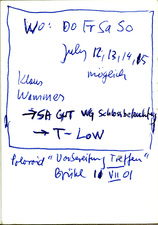 Wo: DO Fr Sa So
July 12, 13, 14, 15
möglich
Klaus
Wammes
→ SA GHT WG
→ T-LOW
Polaroid "Vorbereitung Treffen"
Brühl 11 VII 01